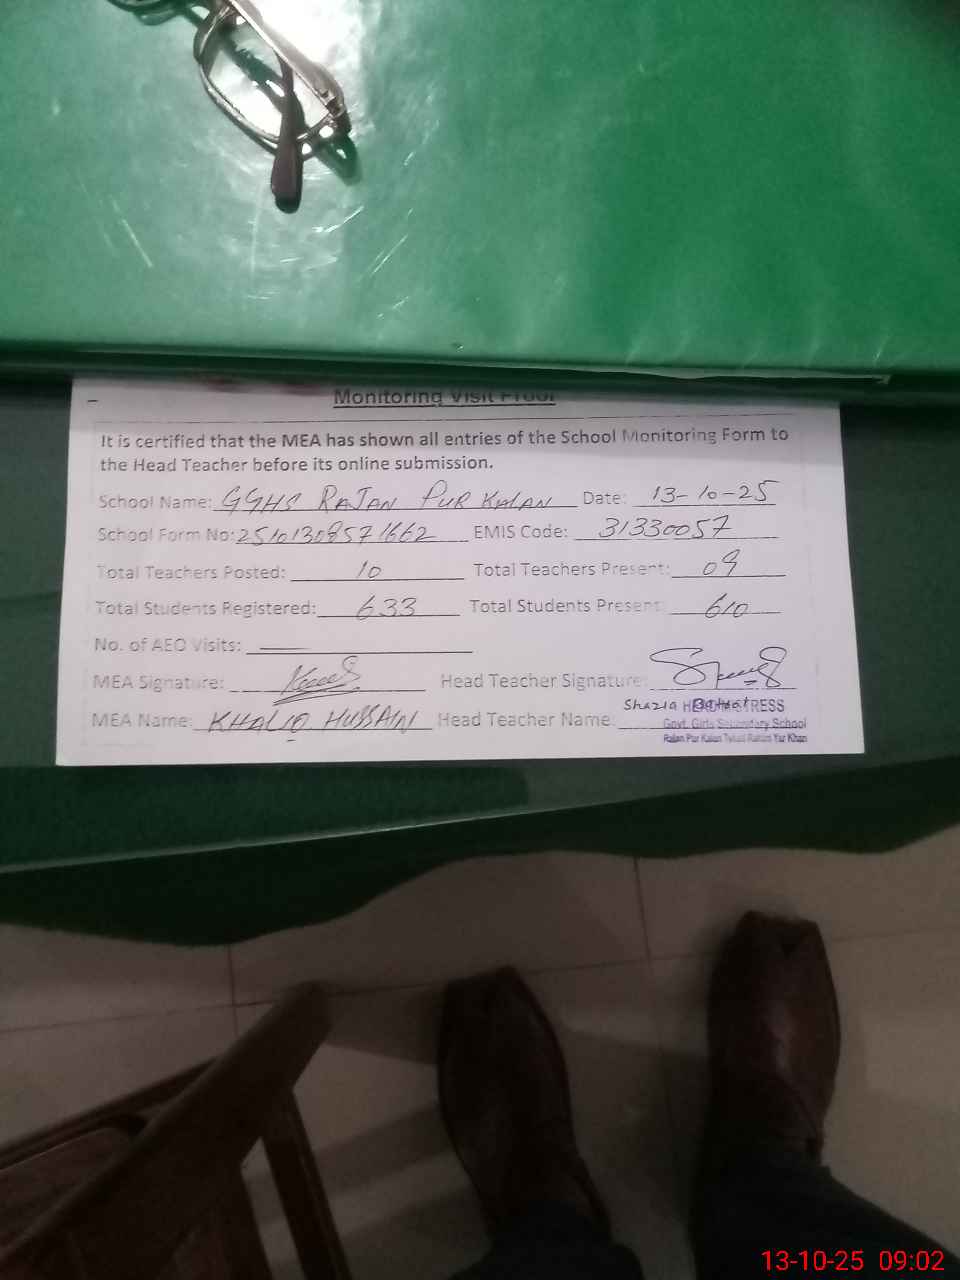 Monitoring Visit Proof
It is certified that the MEA has shown all entries of the School Monitoring Form to
the Head Teacher before its online submission.
School Name: GGHS RAJAN PUR KALAN Date: 13-10-25
School Form No: 25101308571662 EMIS Code: 31330057
Total Teachers Posted: 10 Total Teachers Present: 09
Total Students Registered: 633 Total Students Present: 610
No. of AEO Visits: —
MEA Signature: Head Teacher Signature:
MEA Name: KHALIQ HUSSAIN Head Teacher Name Shazia
Govt. Girls Secondary School
Rajan Pur Kalan Tehsil Rahim Yar Khan
13-10-25 09:02